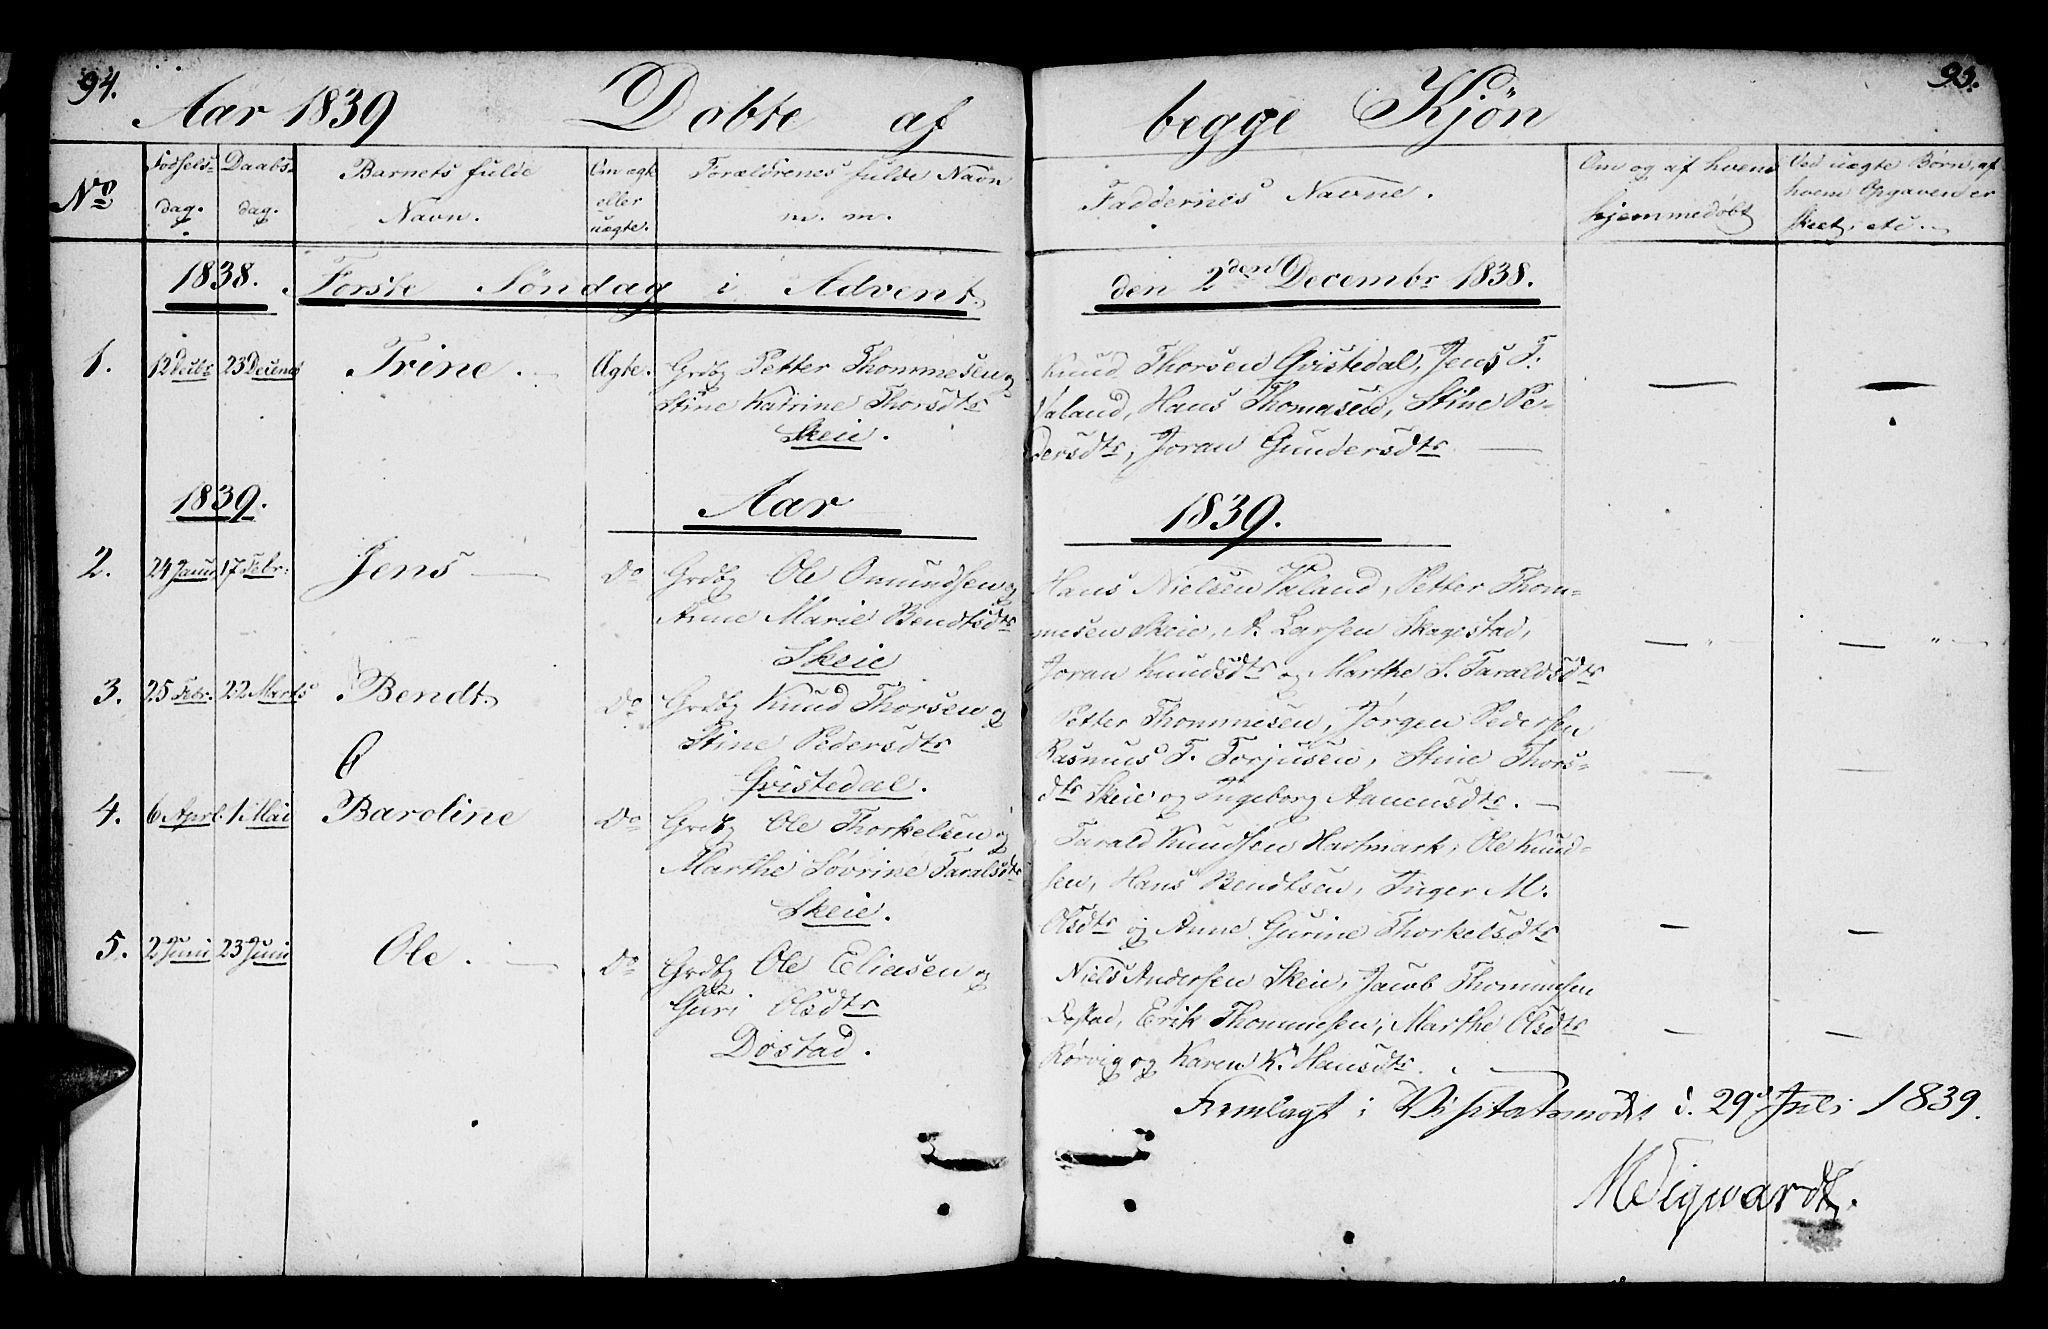 94.
Aar 1839 Døbte af
No
Fødselsdag.
Daabsdag.
Barnets fulde Navn.
Om ægte eller uægte.
Forældrenes fulde Navn m. m.
1838. Første Söndag i Advent
1. 12 Decbr 23 Decemb Trine. Ægte. Grdbr Petter Thommesen og
Stine Katrine Thorsdtr
Skeie.
1839. Aar
2. 24 Januar 17 Febr. Jens Do Grdbr Ole Omundsen og
Anne Marie Bendtsdtr
Skeie
3. 25 Febr. 22 Marts Bendt. Do Grdbr Knud Thorsen og
Stine Pedersdtr
Qvistedal.
4. 6 April. 1 Mai Baroline Do Grdbr Ole Thorkelsen og
Marthe Sovrine Taralsdtr
Skeie.
5. 2 Juni 23 Juni Ole. Do Grdbr Ole Eliasen og
Guri Olsdtr
Døstad.
95.
begge Kjön
Faddernes Navne.
Om og af hvem hjemmedøbt
Ved uægte Börn, af hvem Opgaven er skeet, etc.
den 2den Decembr 1838.
Knud Thorsen Qvistedal, Jens T.
Valand, Hans Thomesen, Stine Pe-
dersdtr, Joran Gundersdtr
1839.
Hans Nielsen Valand, Petter Thom-
mesen Skeie, A. Larsen Skagestad,
Joran Knudsdtr og Marthe S. Taraldsdtr
Petter Thommesen, Jørgen Pedersen
Rasmus T. Torjusen, Stine Thors-
dtr Skeie og Ingeborg Aanensdtr.
Tarald Knudsen Hartmark, Ole Knud-
sen, Hans Bendtsen, Inger M.
Olsdtr og Anne Gurine Thorkelsdtr
Niels Andersen Skeie, Jacob Thommesen
Døstad, Erik Thommesen, Marthe Olsdtr
Rørvig og Karen K. Hansdtr.
Fremlagt i Visitatsmødet d. 29d Juli 1839.